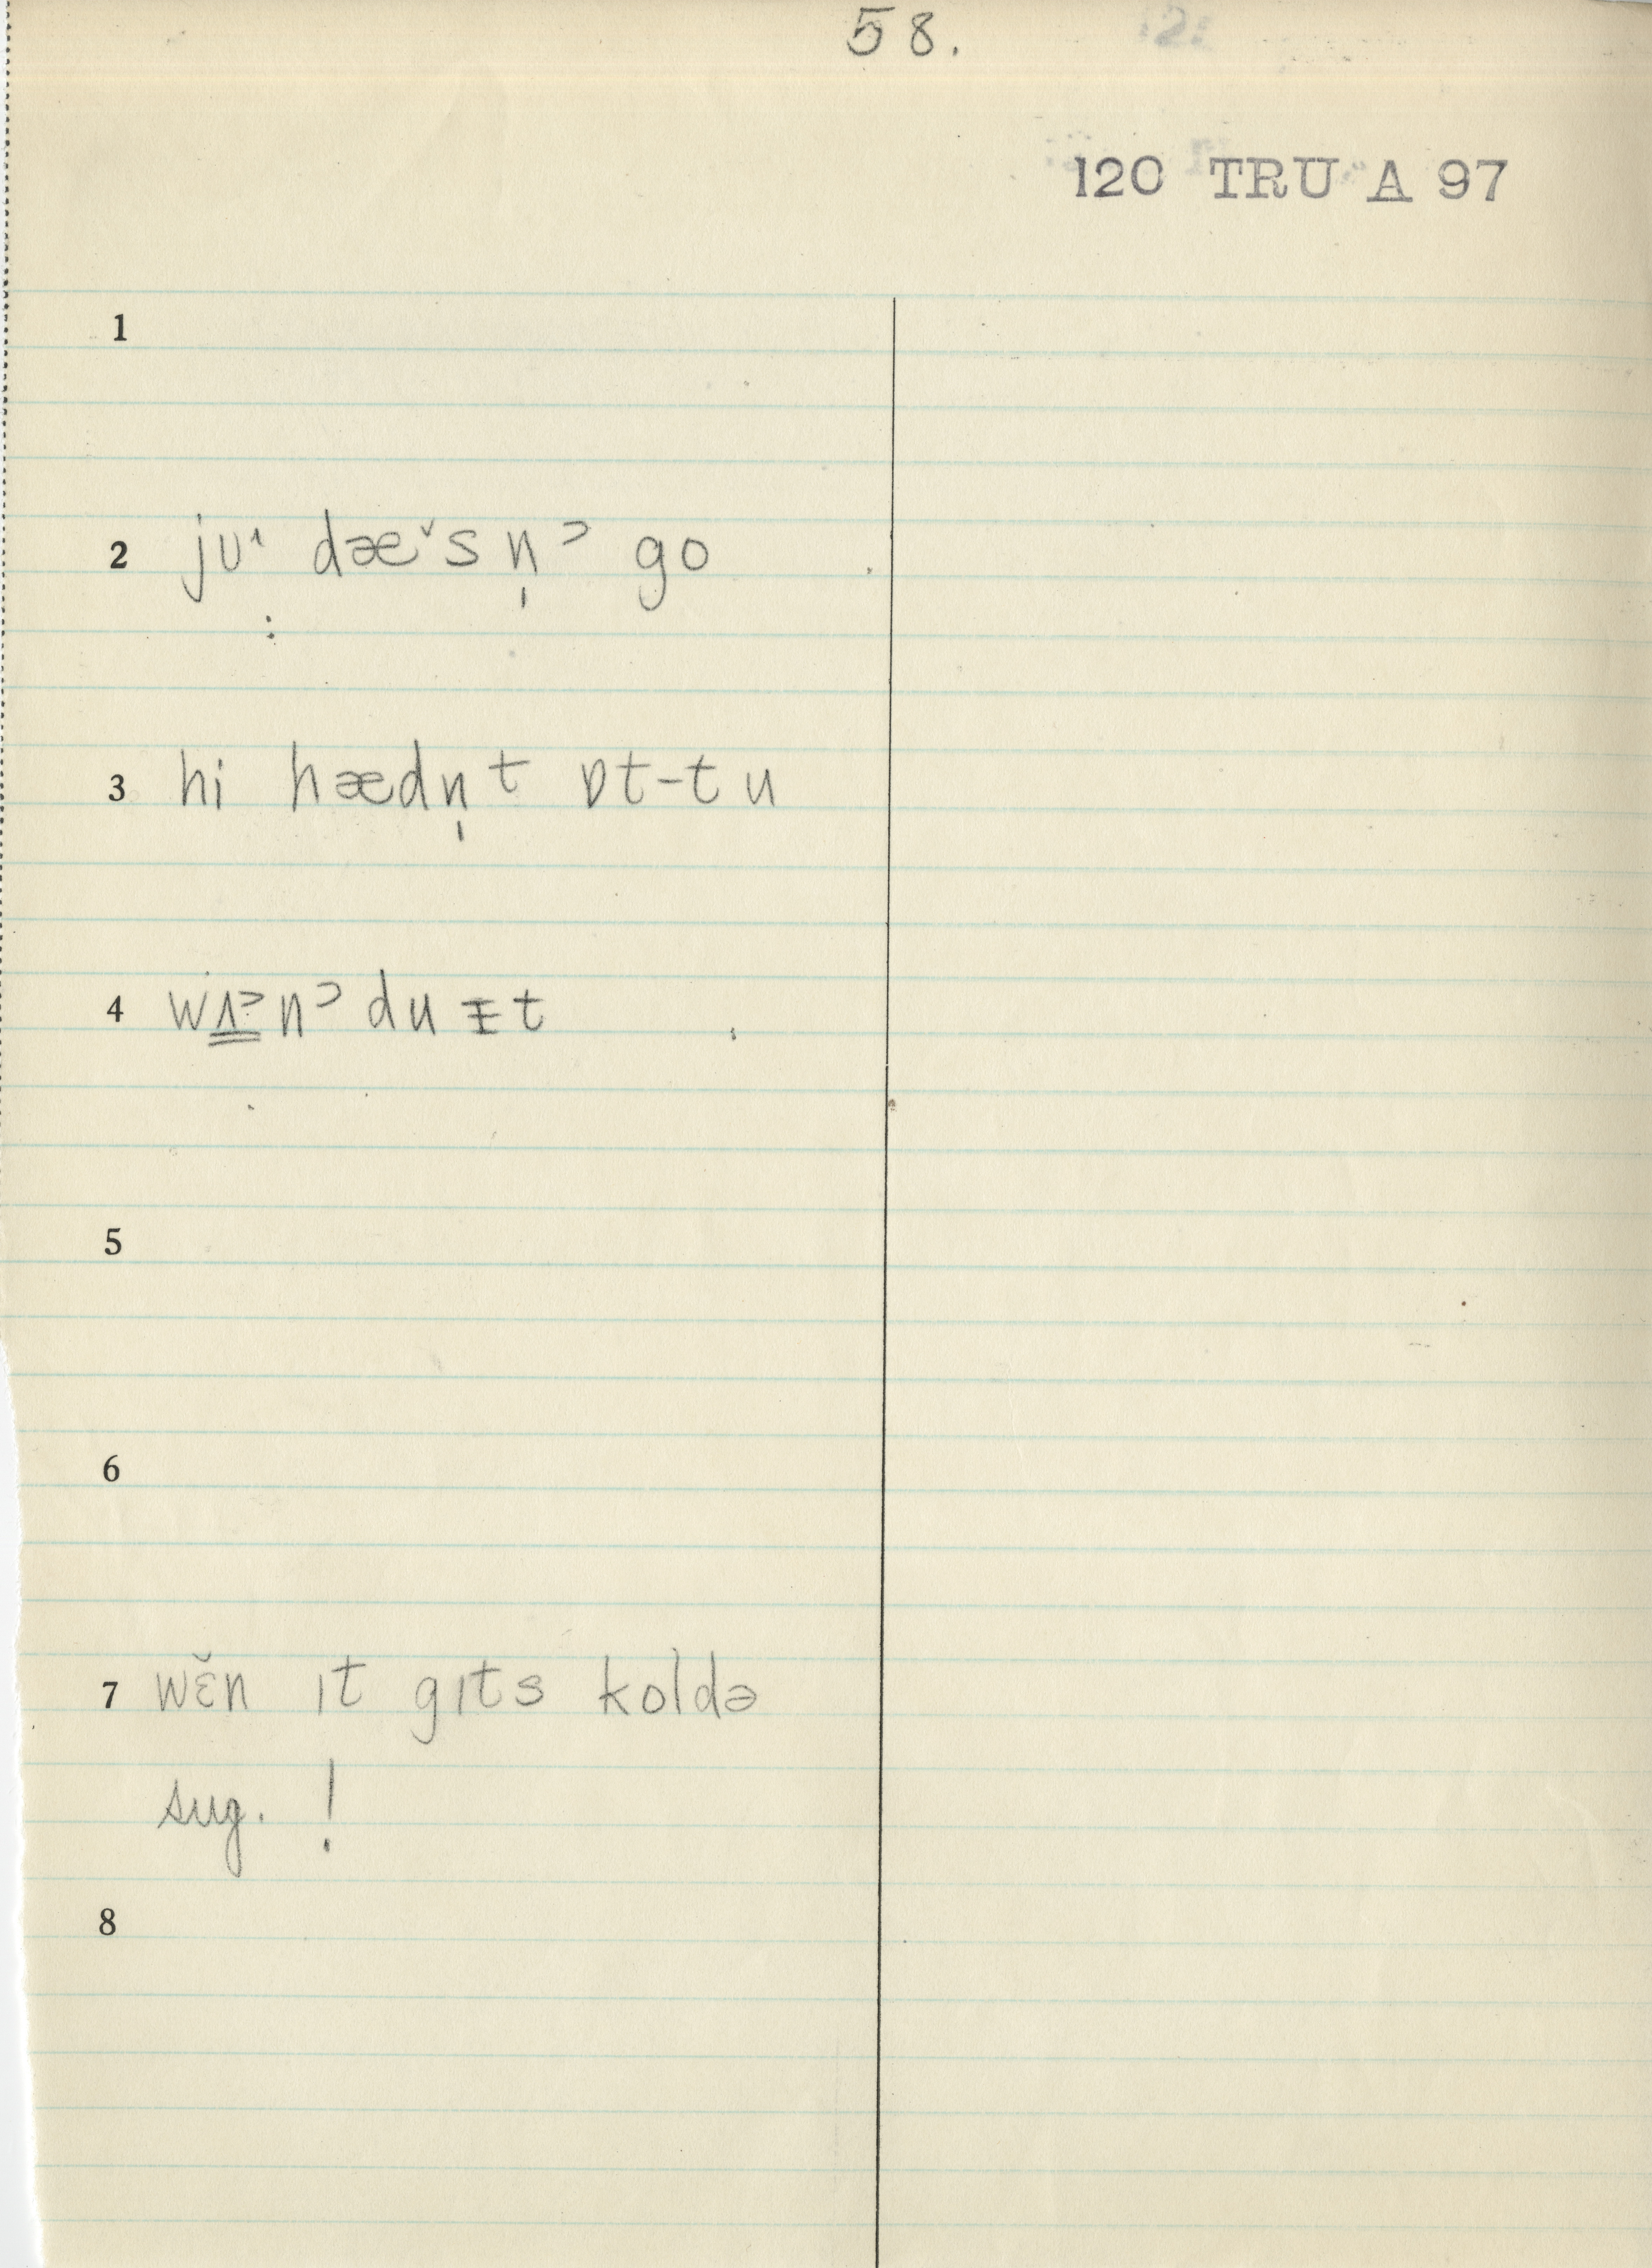 58.
120 TRU A 97
1
2 jʊ˔ dæ˅s n̩ ᵓ go
3 hi hædn̩ t ɒt-tu
4 wʌ˃nᵓ du ɪt
5
6
7 wɛ̆n ɪt gɪts koldə
sug. !
8